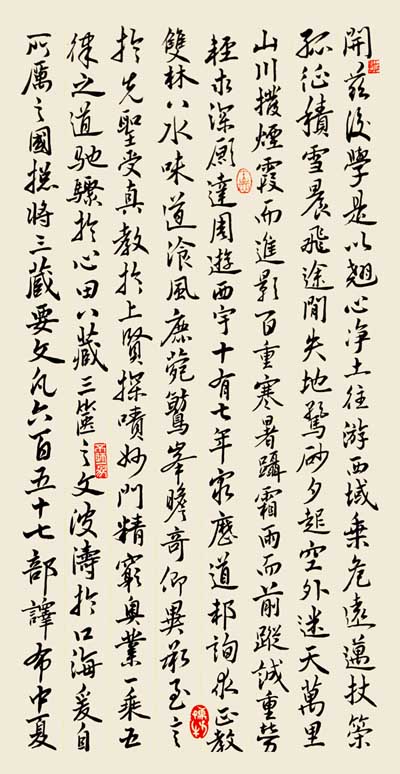 開茲後學是以翹心净土往游西域乘危遠邁杖策
孤征積雪晨飛途閒失地驚砂夕起空外迷天萬里
山川撥煙霞而進影百重寒暑躡霜雨而前蹤誠重勞
輕求深願達周遊西宇十有七年窮歷道邦詢求正教
雙林八水味道飡風鹿菀鷲峯瞻奇仰異承至言
於先聖受真教於上賢探賾妙門精窮奧業一乘五
律之道馳驟於心田八藏三篋之文波濤於口海爰自
所歷之國摠將三藏要文凡六百五十七部譯布中夏